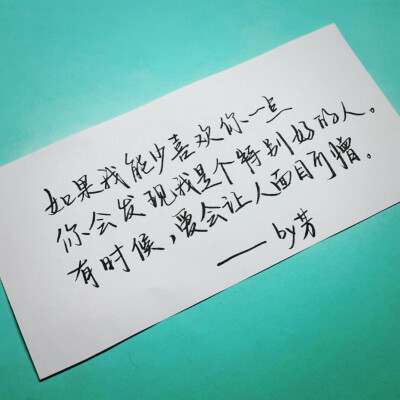 如果我能少喜欢你一点
你会发现我是个特别好的人。
有时候,爱会让人面目可憎。
——by芳